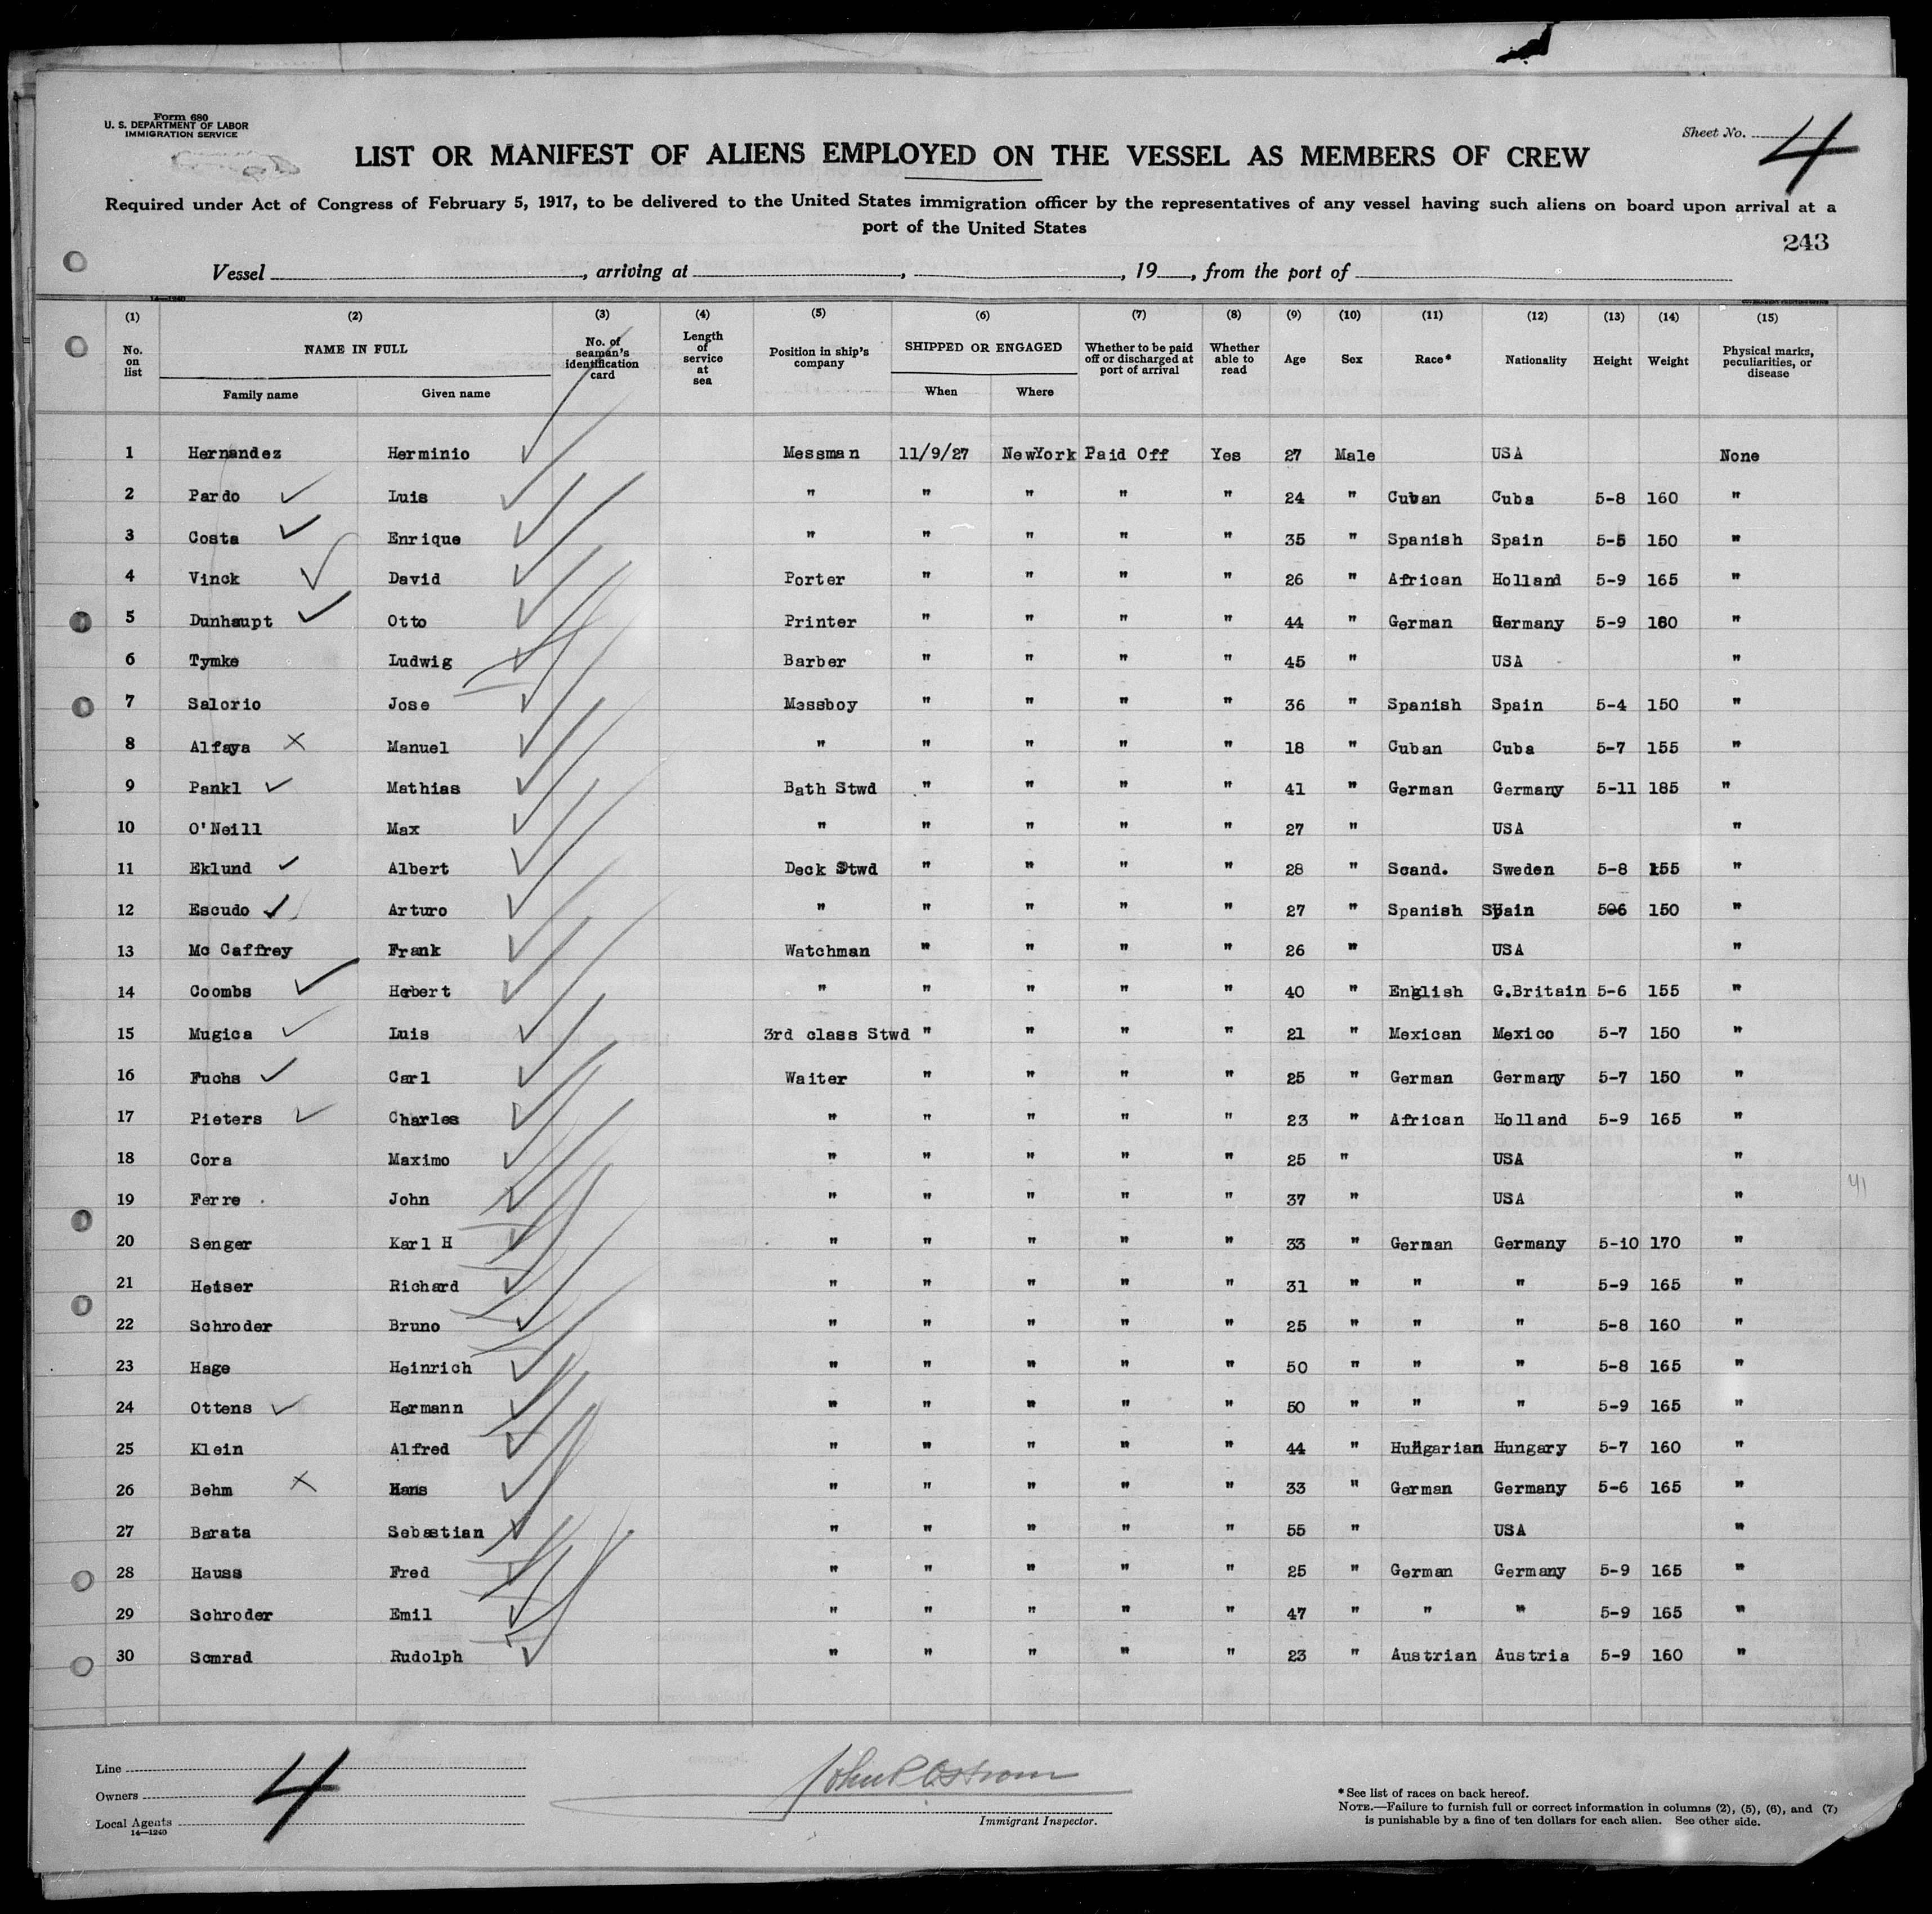 Form 680
U. S. DEPARTMENT OF LABOR
IMMIGRATION SERVICE
Sheet No. 4
LIST OR MANIFEST OF ALIENS EMPLOYED ON THE VESSEL AS MEMBERS OF CREW
Required under Act of Congress of February 5, 1917, to be delivered to the United States immigration officer by the representatives of any vessel having such aliens on board upon arrival at a
port of the United States
243
Vessel , arriving at , , 19 , from the port of
14—1240
(1) (2) (3) (4) (5) (6) (7) (8) (9) (10) (11) (12) (13) (14) (15)
No. on list NAME IN FULL Family name Given name No. of seaman's identification card Length of service at sea Position in ship's company SHIPPED OR ENGAGED When Where Whether to be paid off or discharged at port of arrival Whether able to read Age Sex Race* Nationality Height Weight Physical marks, peculiarities, or disease
1 Hernandez Herminio Messman 11/9/27 NewYork Paid Off Yes 27 Male USA None
2 Pardo Luis " " " " " 24 " Cuban Cuba 5-8 160 "
3 Costa Enrique " " " " " 35 " Spanish Spain 5-5 150 "
4 Vinck David Porter " " " " 26 " African Holland 5-9 165 "
5 Dunhaupt Otto Printer " " " " 44 " German Germany 5-9 180 "
6 Tymke Ludwig Barber " " " " 45 " USA "
7 Salorio Jose Messboy " " " " 36 " Spanish Spain 5-4 150 "
8 Alfaya Manuel " " " " " 18 " Cuban Cuba 5-7 155 "
9 Pankl Mathias Bath Stwd " " " " 41 " German Germany 5-11 185 "
10 O'Neill Max " " " " " 27 " USA "
11 Eklund Albert Deck Stwd " " " " 28 " Scand. Sweden 5-8 155 "
12 Escudo Arturo " " " " " 27 " Spanish Spain 5-6 150 "
13 Mc Caffrey Frank Watchman " " " " 26 " USA "
14 Coombs Herbert " " " " " 40 " English G.Britain 5-6 155 "
15 Mugica Luis 3rd class Stwd " " " " 21 " Mexican Mexico 5-7 150 "
16 Fuchs Carl Waiter " " " " 25 " German Germany 5-7 150 "
17 Pieters Charles " " " " " 23 " African Holland 5-9 165 "
18 Cora Maximo " " " " " 25 " USA "
19 Ferre John " " " " " 37 " USA "
20 Senger Karl H " " " " " 33 " German Germany 5-10 170 "
21 Heiser Richard " " " " " 31 " " " 5-9 165 "
22 Schroder Bruno " " " " " 25 " " " 5-8 160 "
23 Hage Heinrich " " " " " 50 " " " 5-8 165 "
24 Ottens Hermann " " " " " 50 " " " 5-9 165 "
25 Klein Alfred " " " " " 44 " Hungarian Hungary 5-7 160 "
26 Behm Hans " " " " " 33 " German Germany 5-6 165 "
27 Barata Sebastian " " " " " 55 " USA "
28 Hauss Fred " " " " " 25 " German Germany 5-9 165 "
29 Schroder Emil " " " " " 47 " " " 5-9 165 "
30 Somrad Rudolph " " " " " 23 " Austrian Austria 5-9 160 "
41
Line
Owners
Local Agents
14—1240
4
John P Ostrom
Immigrant Inspector.
* See list of races on back hereof.
NOTE.—Failure to furnish full or correct information in columns (2), (5), (6), and (7)
is punishable by a fine of ten dollars for each alien. See other side.